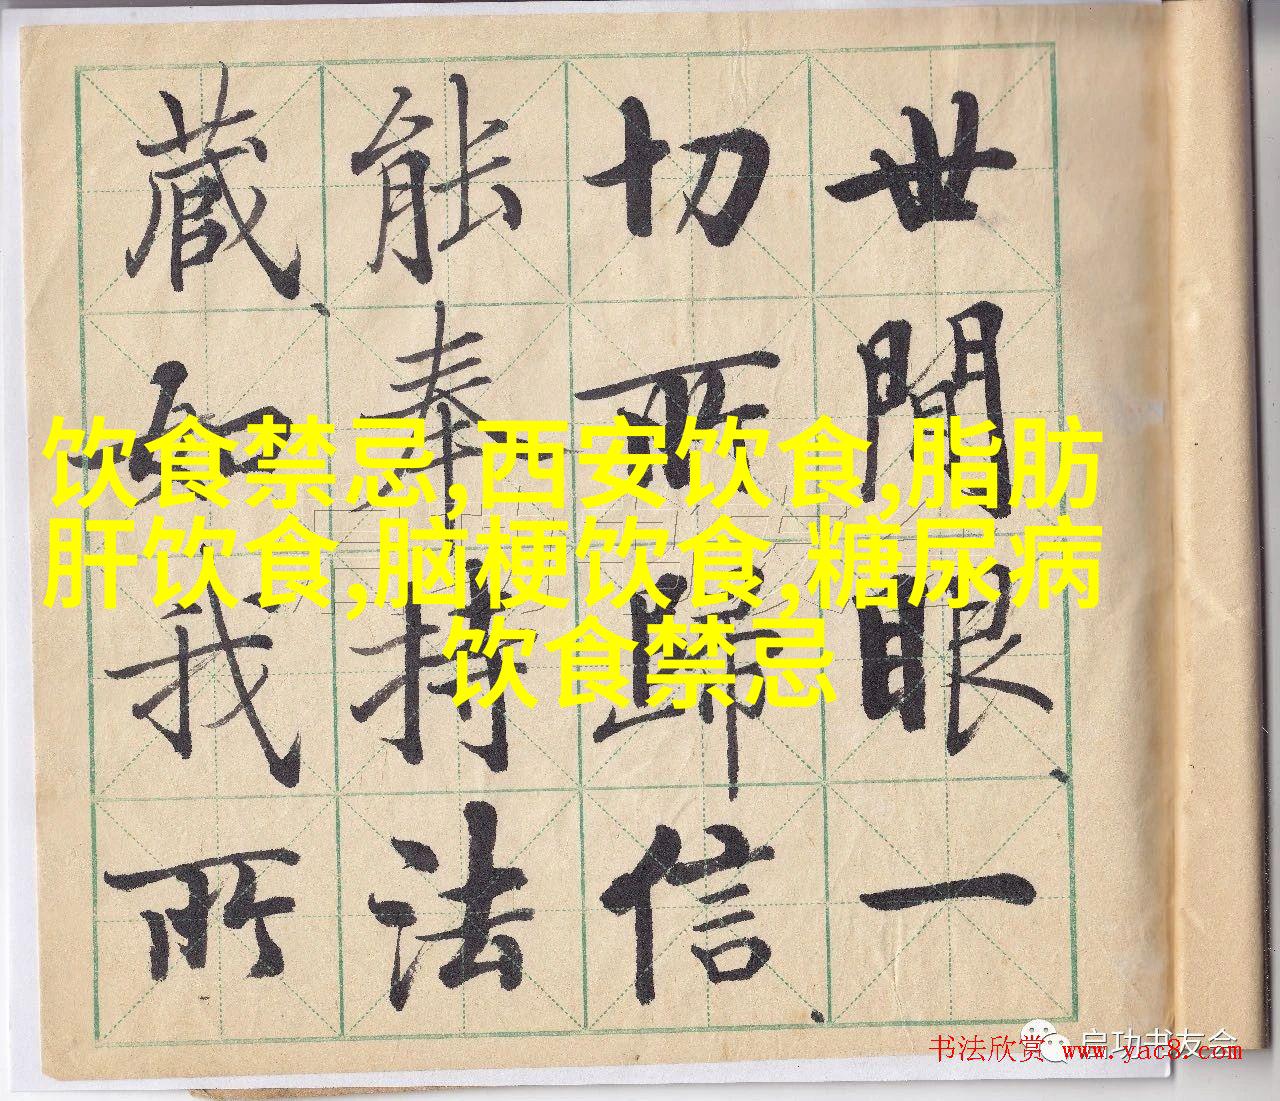 世間眼一
切所歸信
能奉持法
藏如我所
饮食禁忌,西安饮食,脂肪
肝饮食,脑梗饮食,糖尿病
饮食禁忌
启功书友会
书法欣赏 www.yac8.com